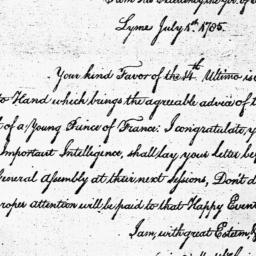 Lyme July 1st. 1785.
Your kind Favor of the 14th Ultimo is
to Hand which brings the agreable advice of t
t of a Young Prince of France. I congratulate, y
Important Intelligence, shall lay your Letter be
General Assembly at their next Sessions, Don't d
roper attention will be paid to that Happy Event
I am, with great Esteem, &